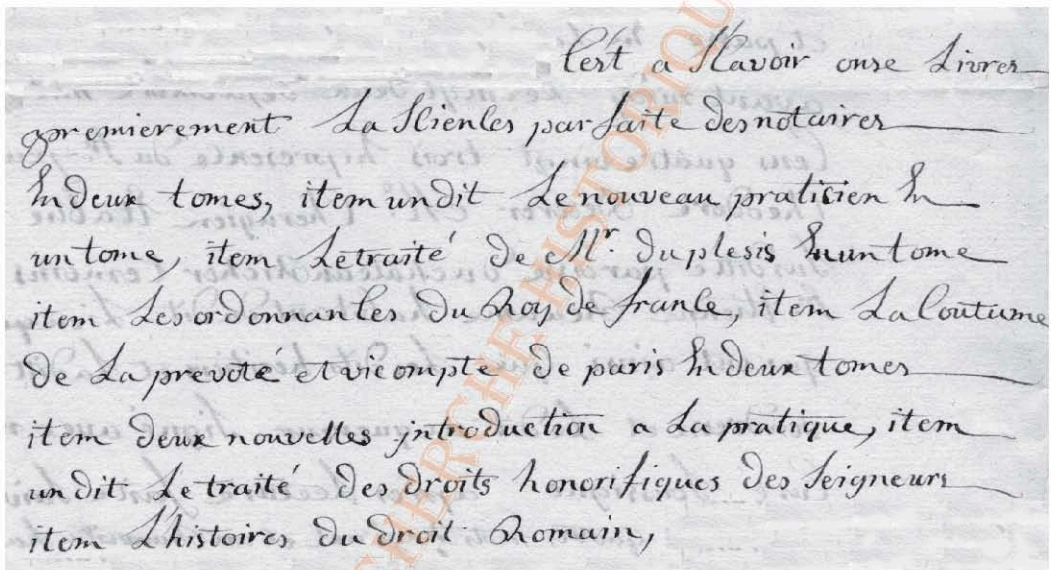 C'est a Scavoir onse Livres
premierement La Sciences parfaite des notaires
En deux tomes, item un dit Le nouveau pratisien En
un tome, item Le traité de Mr. duplesis En un tome
item Les ordonnances du Roy de france, item La Coutume
de La prevoté et vicompte de paris En deux tomes
item deux nouvelles introduction a La pratique, item
un dit Le traité des droits honorifiques des Seigneurs
item L'histoires du droit Romain,
RCHERCHE HISTORIQU